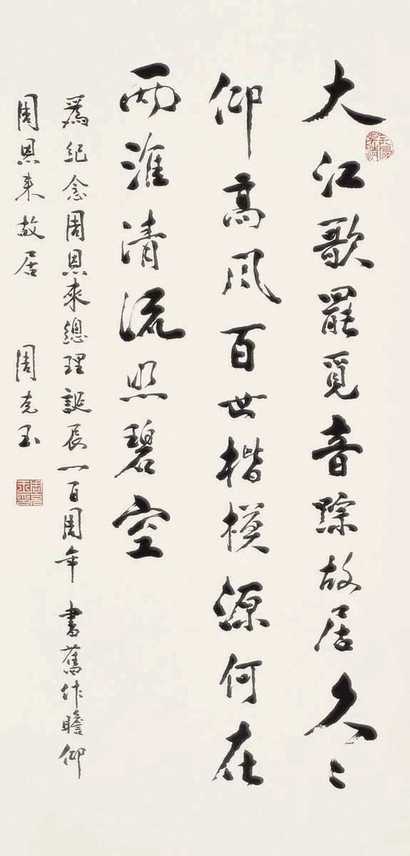 大江歌罷覓音踪故居久〻
仰高風百世楷模源何在
兩淮清流照碧空
為紀念周恩來總理誕辰一百周年 書舊作瞻仰
周恩来故居 周克玉